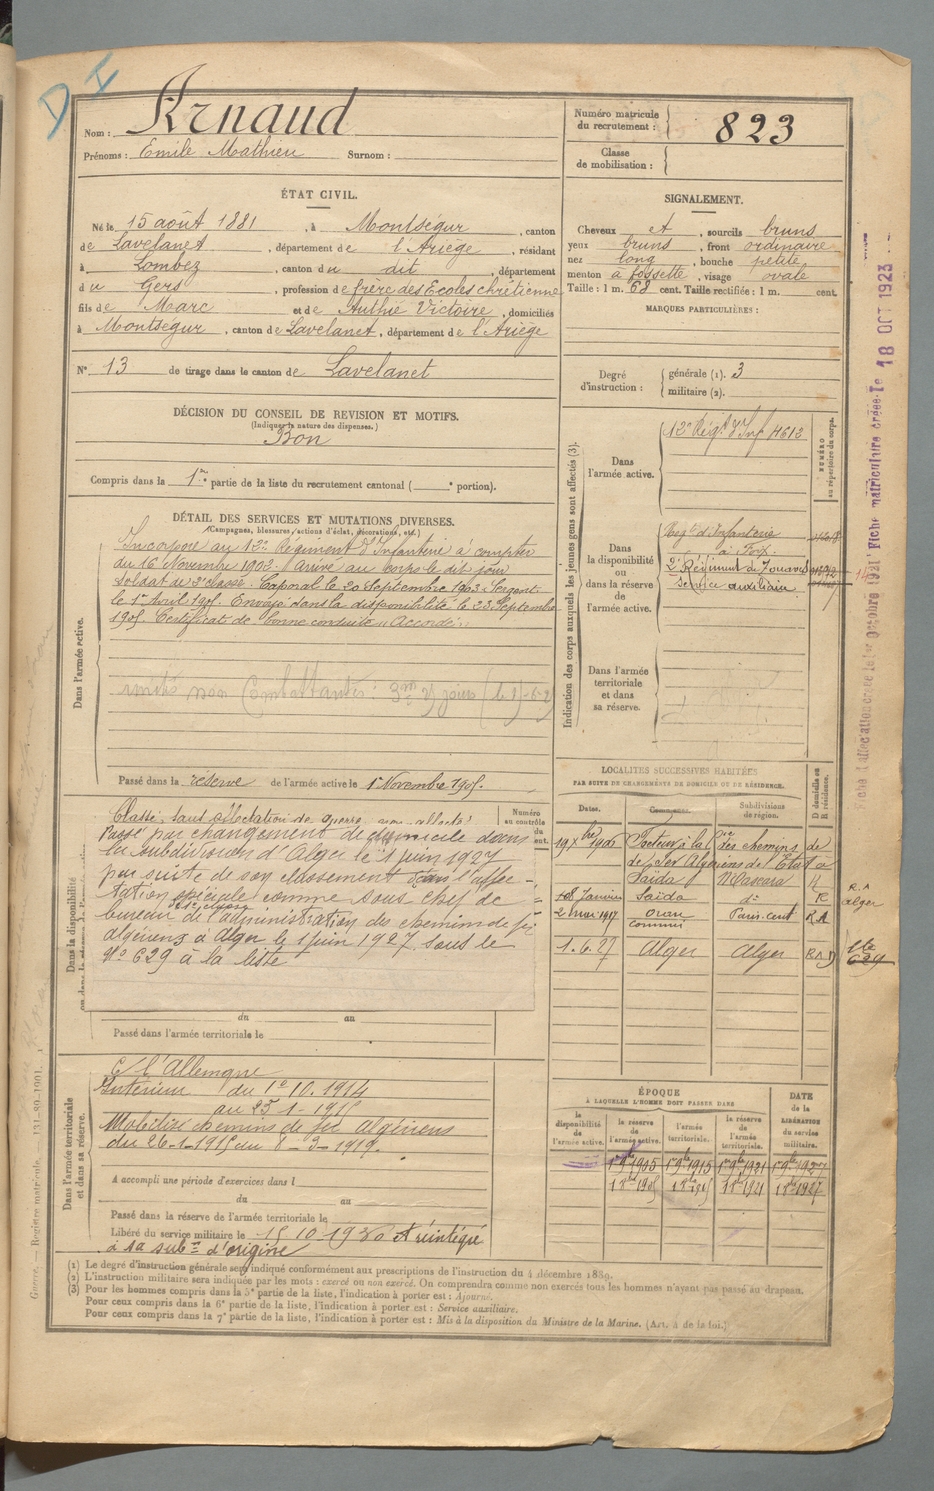 D I
Nom : Arnaud
Prénoms : Emile Mathieu Surnom :
Numéro matricule du recrutement : 823
Classe de mobilisation :
ÉTAT CIVIL.
Né le 15 août 1881, à Montségur, canton
de Lavelanet, département de l'Ariège, résidant
à Lombez, canton du dit, département
du Gers, profession de frère des Ecoles chrétiennes
fils de Marc et de Authié Victoire, domiciliés
à Montségur, canton de Lavelanet, département de l'Ariège
N° 13 de tirage dans le canton de Lavelanet
SIGNALEMENT.
Cheveux et, sourcils bruns
yeux bruns, front ordinaire
nez long, bouche petite
menton à fossette, visage ovale
Taille : 1 m. 68 cent. Taille rectifiée : 1 m. cent.
MARQUES PARTICULIÈRES :
Degré d'instruction : générale (1). 3
militaire (2).
DÉCISION DU CONSEIL DE REVISION ET MOTIFS.
(Indiquer la nature des dispenses.)
Bon
Compris dans la 1re partie de la liste du recrutement cantonal ( e portion).
DÉTAIL DES SERVICES ET MUTATIONS DIVERSES.
(Campagnes, blessures, actions d'éclat, décorations, etc.)
Dans l'armée active.
Incorporé au 12e Régiment d'Infanterie à compter
du 16 Novembre 1902. Arrivé au corps le dit jour
Soldat de 2e classe. Caporal le 20 Septembre 1903. Sergent
le 1er Avril 1905. Envoyé dans la disponibilité le 23 Septembre
1905. Certificat de bonne conduite "Accordé".
unités non Combattantes : 3m 25 jours
Passé dans la réserve de l'armée active le 1er Novembre 1905.
Indication des corps auxquels les jeunes gens sont affectés (3).
NUMÉRO au répertoire du corps.
Dans l'armée active.
12e Régt d'Inf 4612
Dans la disponibilité ou dans la réserve de l'armée active.
Régt d'Infanterie
à Foix
2e Régiment de Zouaves
Service auxiliaire
Dans l'armée territoriale et dans sa réserve.
Fiche matriculaire créée le 18 OCT 1923
LOCALITÉS SUCCESSIVES HABITÉES
PAR SUITE DE CHANGEMENTS DE DOMICILE OU DE RÉSIDENCE.
Dates. Communes. Subdivisions de région. D domicile ou R résidence.
19 Xbre 1906 Facteur à la Cie des chemins de
de fer Algériens de l'Etat à
Saïda Mascara R
Janvier Saïda do R
2 mai 1917 Oran Paris-cent RA
1.6.27 Alger Alger RA
R.A Alger
Dans la disponibilité
Classé, sauf
Numéro au contrôle
Passé par changement de domicile dans
la subdivision d'Alger le 1 juin 1927
par suite de son classement dans l'affec-
tation spéciale comme sous chef de
bureau de l'administration des chemins de fer
algériens à Alger le 1 juin 1927 sous le
N° 629 à la liste
du au
Passé dans l'armée territoriale le
Dans l'armée territoriale et dans sa réserve.
C/ l'Allemagne
Intérieur du 1er 10. 1914
au 25-1-1915
Mobilisé chemins de fer Algériens
du 26-1-1915 au 8-3-1919.
A accompli une période d'exercices dans l
du au
Passé dans la réserve de l'armée territoriale le
Libéré du service militaire le 15 10-1930 et réintégré
à sa subon d'origine
ÉPOQUE
À LAQUELLE L'HOMME DOIT PASSER DANS
DATE de la LIBÉRATION du service militaire.
la disponibilité de l'armée active. la réserve de l'armée active. l'armée territoriale. la réserve de l'armée territoriale.
1er 9bre 1905 1er 9bre 1915 1er 9bre 1921 1er 9bre 1927
(1) Le degré d'instruction générale sera indiqué conformément aux prescriptions de l'instruction du 4 décembre 1889.
(2) L'instruction militaire sera indiquée par les mots : exercé ou non exercé. On comprendra comme non exercés tous les hommes n'ayant pas passé au drapeau.
(3) Pour les hommes compris dans la 5e partie de la liste, l'indication à porter est : Ajourné.
Pour ceux compris dans la 6e partie de la liste, l'indication à porter est : Service auxiliaire.
Pour ceux compris dans la 7e partie de la liste, l'indication à porter est : Mis à la disposition du Ministre de la Marine. (Art. 4 de la loi.)